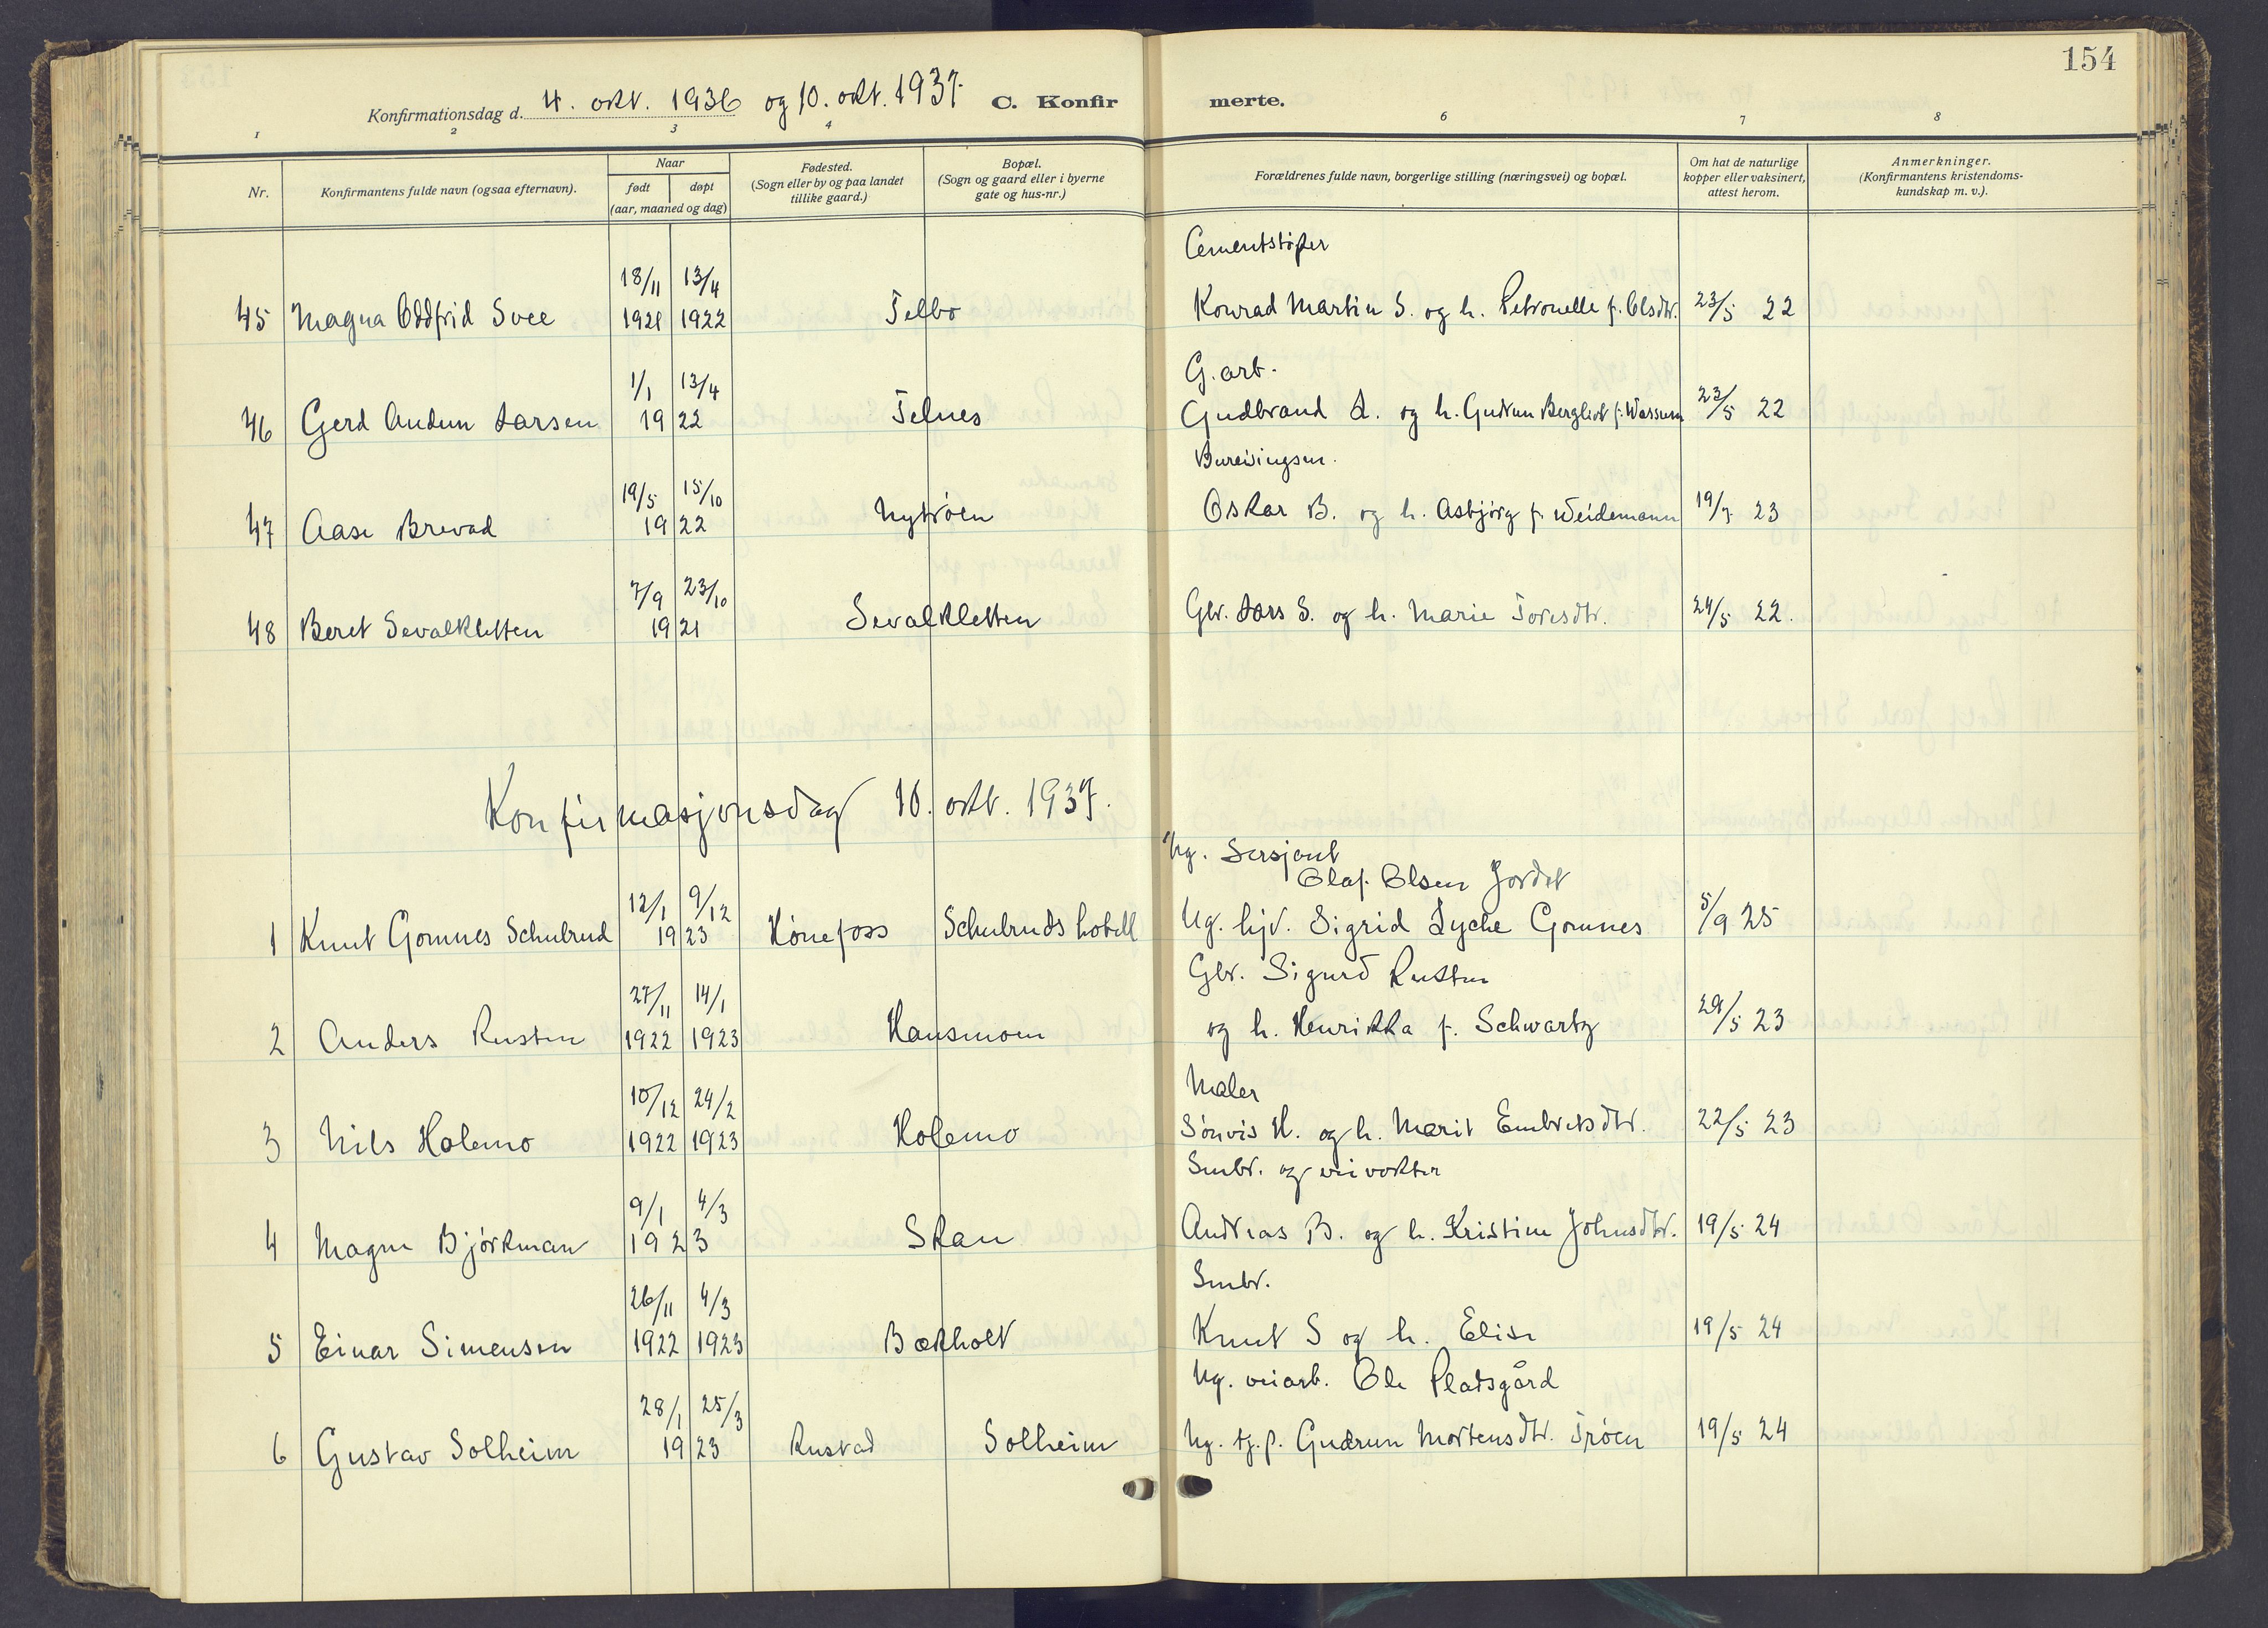 154
Konfirmationsdag d. 4. okt. 1936 og 10. okt. 1937. C. Konfir merte.
1 2 3 4 6 7 8
Nr. Konfirmantens fulde navn (ogsaa efternavn). Naar født døpt (aar, maaned og dag) Fødested. (Sogn eller by og paa landet tillike gaard.) Bopæl. (Sogn og gaard eller i byerne gate og hus-nr.) Forældrenes fulde navn, borgerlige stilling (næringsvei) og bopæl. Om hat de naturlige kopper eller vaksinert, attest herom. Anmerkninger. (Konfirmantens kristendoms-kundskap m. v.).
Cementstøper
18/11 13/4
45 Magna Oddfrid Svee 1921 1922 Telbo Konrad Martin S. og h. Petronelle f. Olsdtr. 23/5 22
G. arb.
1/1 13/4
46 Gerd Audun Larsen 19 22 Telnes Gudbrand L. og h. Gudrun Bergliot f. Wassum 23/5 22
Bureisingsm.
19/5 15/10
47 Aase Brevad 19 22 Nytrøen Oskar B. og h. Asbjørg f. Weidemann 19/7 23
7/9 23/10
48 Beret Sevalkletten 19 21 Sevalkletten Gbr. Lars S. og h. Marie Toresdtr. 24/5 22.
Konfirmasjonsdag 10. okt. 1937.
Ug. Sersjant
Olaf Olsen Jordet
12/1 9/12
1 Knut Gomnes Schulrud 19 23 Hønefoss Schulruds hotell Ug. hjv. Sigrid Lyche Gomnes 5/9 25
Gbr. Sigurd Rusten
27/11 14/1
2 Anders Rusten 1922 1923 Hansmoen og h. Henrikka f. Schwartz 24/5 23
Maler
10/12 24/2
3 Nils Holemo 1922 1923 Holemo Sønvis H. og h. Marit Embretsdtr. 22/5 23
Smbr. og veivokter
9/1 4/3
4 Magne Bjørkman 192 3 Skau Andreas B. og h. Kristine Johnsdtr. 19/5 24
Smbr.
26/11 4/3
5 Einar Simensen 1922 1923 Bækholt Knut S og h. Elise 19/5 24
Ug. veiarb. Ole Pladsgård
28/1 25/3
6 Gustav Solheim 19 23 Rustad Solheim Ug. tj.p. Gudrun Mortensdtr. Trøen 19/5 24